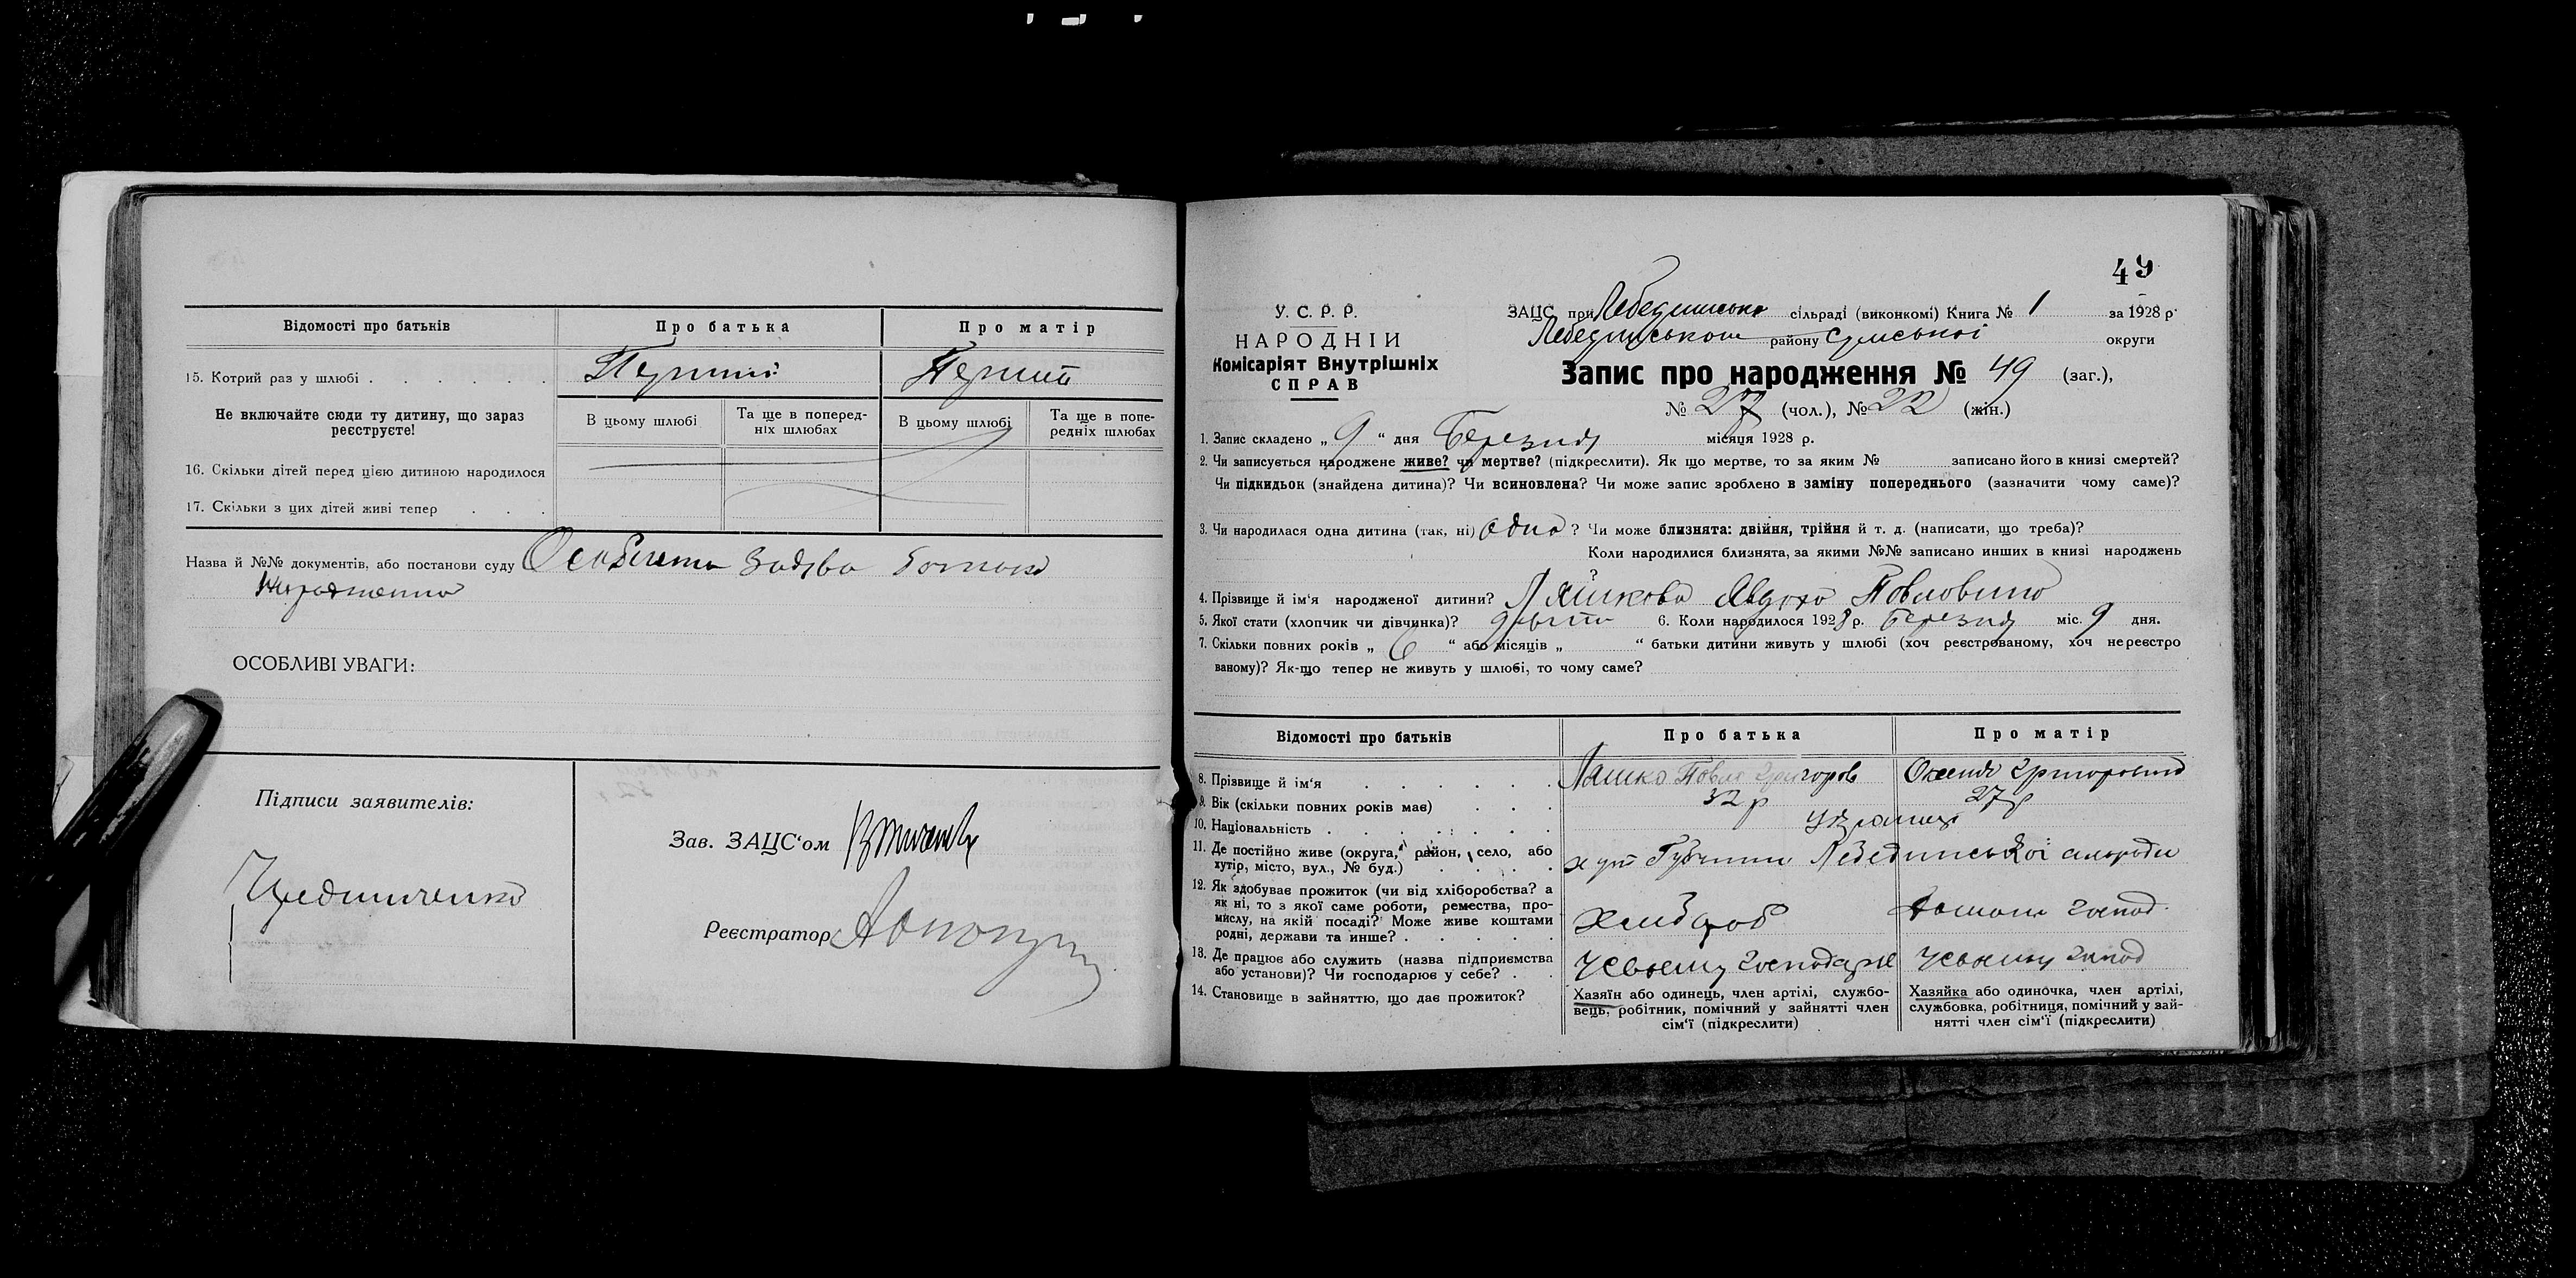 Відомості про батьків
Про батька
Про матір
15. Котрий раз у шлюбі . . . . . . .
Перший
Перший
Не включайте сюди ту дитину, що зараз реєструєте!
В цьому шлюбі
Та ще в поперед-
ніх шлюбах
В цьому шлюбі
Та ще в попе-
редніх шлюбах
16. Скільки дітей перед цією дитиною народилося
17. Скільки з цих дітей живі тепер . . .
Назва й №№ документів, або постанови суду
ОСОБЛИВІ УВАГИ:
Підписи заявителів:
Зав. ЗАЦС‘ом
Реєстратор
49
У. С. Р. Р.
НАРОДНІЙ
Комісаріят Внутрішніх
СПРАВ
ЗАЦС при Лебединській сільраді (виконкомі) Книга № 1 за 1928 р.
Лебединського району Сумської округи
Запис про народження № 49 (заг.),
№ 27 (чол.), № 22 (жін.)
1. Запис складено „ 9 “ дня Березня місяця 1928 р.
2. Чи записується народжене живе? чи мертве? (підкреслити). Як що мертве, то за яким № записано його в книзі смертей?
Чи підкидьок (знайдена дитина)? Чи всиновлена? Чи може запис зроблено в заміну попереднього (зазначити чому саме)?
3. Чи народилася одна дитина (так, ні) одна ? Чи може близнята: двійня, трійня й т. д. (написати, що треба)?
Коли народилися близнята, за якими №№ записано инших в книзі народжень
?
4. Прізвище й ім‘я народженої дитини? Ляшкова Явдоха Павловина
5. Якої стати (хлопчик чи дівчинка)? 6. Коли народилося 1928 р. Березня міс. 9 дня.
7. Скільки повних років „ 6 “ або місяців „ “ батьки дитини живуть у шлюбі (хоч реєстрованому, хоч нереєстро
ваному)? Як-що тепер не живуть у шлюбі, то чому саме?
Відомості про батьків
Про батька
Про матір
8. Прізвище й ім‘я . . . . . .
Ляшко Павло Григоров
Оксенія Григоровна
9. Вік (скільки повних років має) . . .
32 р
27 р
10. Національність . . . . . . .
Українці
11. Де постійно живе (округа, район, село, або
хутір, місто, вул., № буд.) . . . .
хут Лебединської сільради
12. Як здобуває прожиток (чи від хліборобства? а
як ні, то з якої саме роботи, ремества, про-
мислу, на якій посаді? Може живе коштами
родні, держави та инше? . . . . .
хлібороб
Домашн господ.
13. Де працює або служить (назва підприємства
або установи)? Чи господарює у себе? . .
У своєму господарстві
У своєму господ
14. Становище в зайняттю, що дає прожиток?
Хазяїн або одинець, член артілі, службо-
вець, робітник, помічний у зайнятті член
сім‘ї (підкреслити)
Хазяйка або одиночка, член артілі,
службовка, робітниця, помічний у зай-
нятті член сім‘ї (підкреслити)